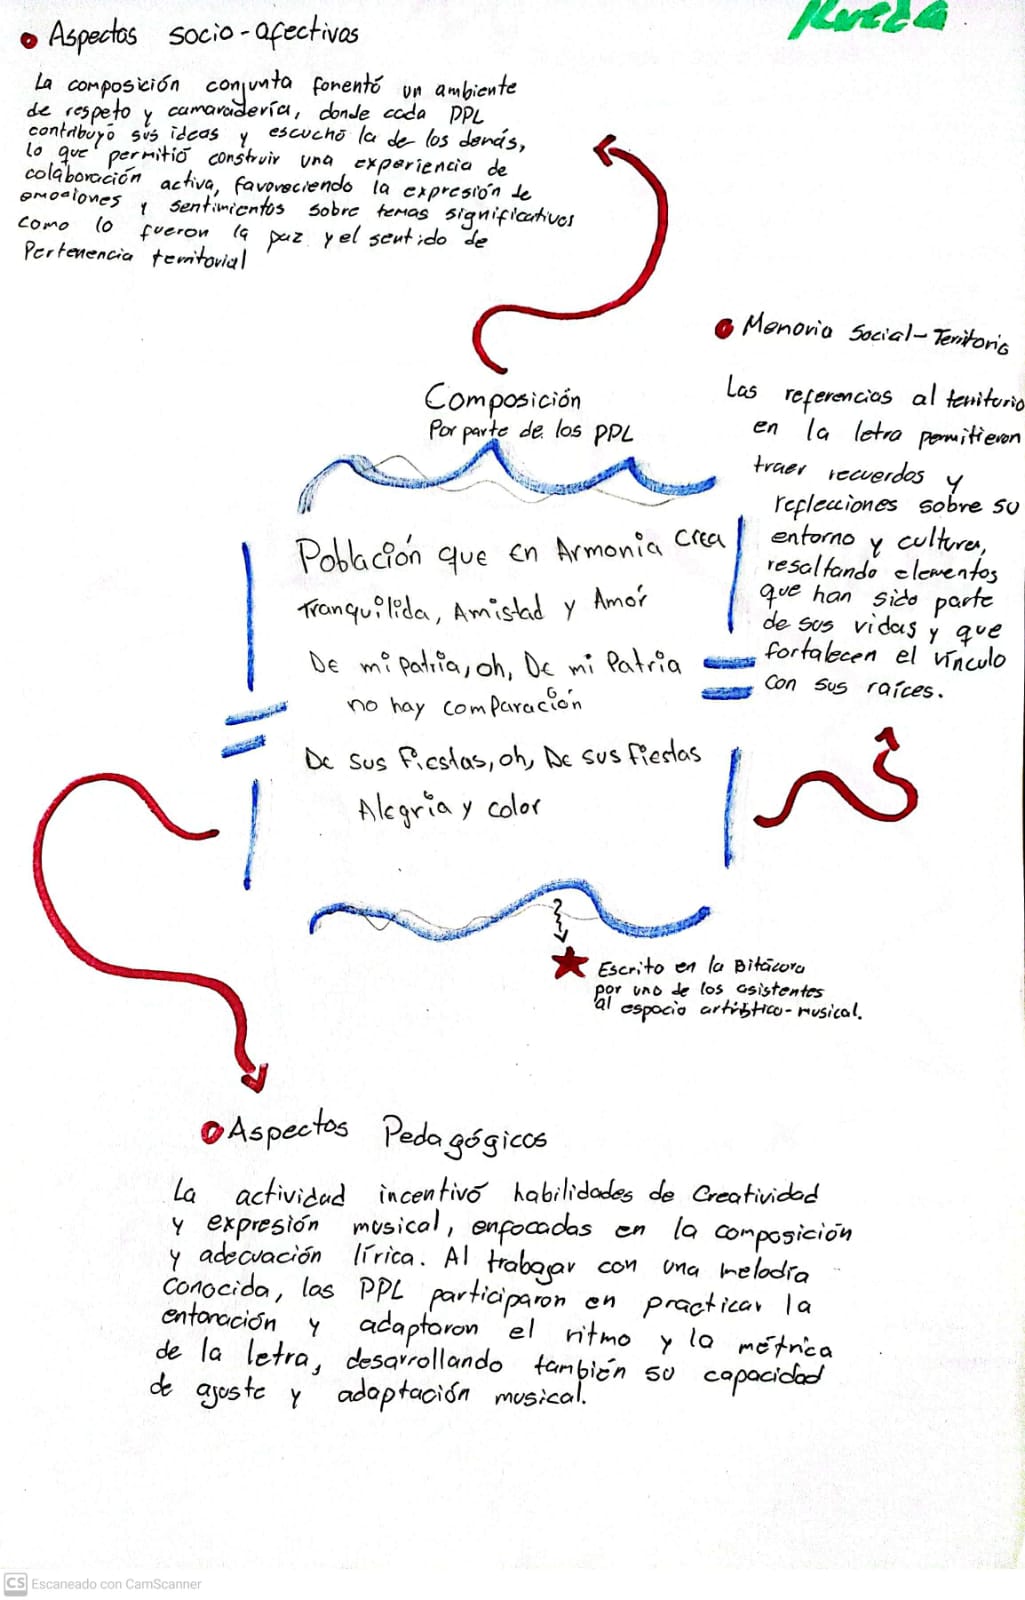 Rueda
Aspectos socio-afectivos
La composición conjunta fomentó un ambiente
de respeto y camaradería, donde cada PPL
contribuyó sus ideas y escuchó la de los demás,
lo que permitió construir una experiencia de
colaboración activa, favoreciendo la expresión de
emociones y sentimientos sobre temas significativos
como lo fueron la paz y el sentido de
Pertenencia territorial
Memoria Social-Territorio
Las referencias al territorio
en la letra permitieron
traer recuerdos y
reflecciones sobre su
entorno y cultura,
resaltando elementos
que han sido parte
de sus vidas y que
fortalecen el vínculo
con sus raíces.
Composición
Por parte de los PPL
Población que en Armonía crea
Tranquilida, Amistad y Amor
De mi patria, oh, De mi Patria
no hay comparación
De sus fiestas, oh, De sus fiestas
Alegría y color
Escrito en la Bitácora
por uno de los asistentes
al espacio artístico-musical.
Aspectos Pedagógicos
La actividad incentivó habilidades de Creatividad
y expresión musical, enfocadas en la composición
y adecuación lírica. Al trabajar con una melodía
conocida, las PPL participaron en practicar la
entonación y adaptaron el ritmo y la métrica
de la letra, desarrollando también su capacidad
de ajuste y adaptación musical.
CS Escaneado con CamScanner